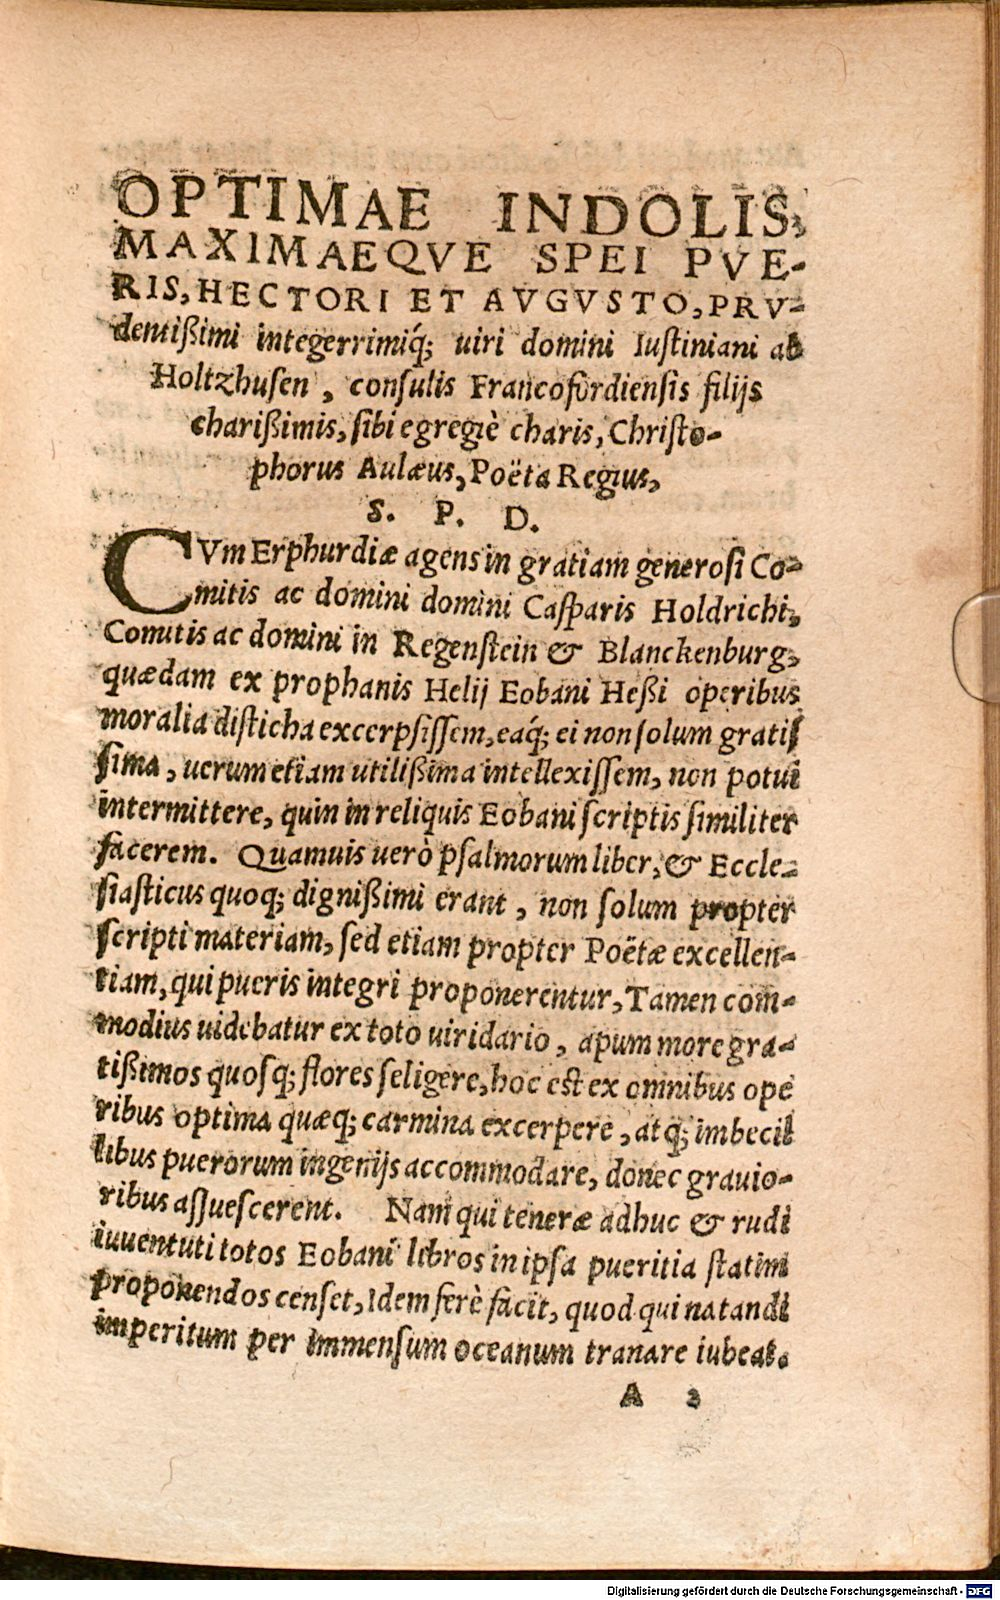 OPTIMAE INDOLIS,
MAXIMAEQVE SPEI PVE-
RIS, HECTORI ET AVGVSTO, PRV-
dentißimi integerrimiq́; uiri domini Iustiniani ab
Holtzhusen, consulis Francofordiensis filijs
charißimis, sibi egregiè charis, Christo-
phorus Aulæus, Poëta Regius,
S. P. D.
CVm Erphurdiæ agens in gratiam generosi Co-
mitis ac domini domini Casparis Holdrichi,
Comitis ac domini in Regenstein & Blanckenburg,
quædam ex prophanis Helij Eobani Heßi operibus
moralia disticha excerpsissem, eaq́; ei non solum gratis
sima, uerum etiam utilißima intellexissem, non potui
intermittere, quin in reliquis Eobani scriptis similiter
facerem. Quamuis uerò psalmorum liber, & Eccle-
siasticus quoq; dignißimi erant, non solum propter
scripti materiam, sed etiam propter Poëtæ excellen-
tiam, qui pueris integri proponerentur, Tamen com-
modius uidebatur ex toto uiridario, apum more gra-
tißimos quosq; flores seligere, hoc est ex omnibus ope
ribus optima quæq; carmina excerpere, atq; imbecil
libus puerorum ingenijs accommodare, donec grauio-
ribus assuescerent. Nam qui teneræ adhuc & rudi
iuuentuti totos Eobani libros in ipsa pueritia statim
proponendos censet, Idem ferè facit, quod qui natandi
imperitum per immensum oceanum tranare iubeat.
A 2
Digitalisierung gefördert durch die Deutsche Forschungsgemeinschaft - DFG